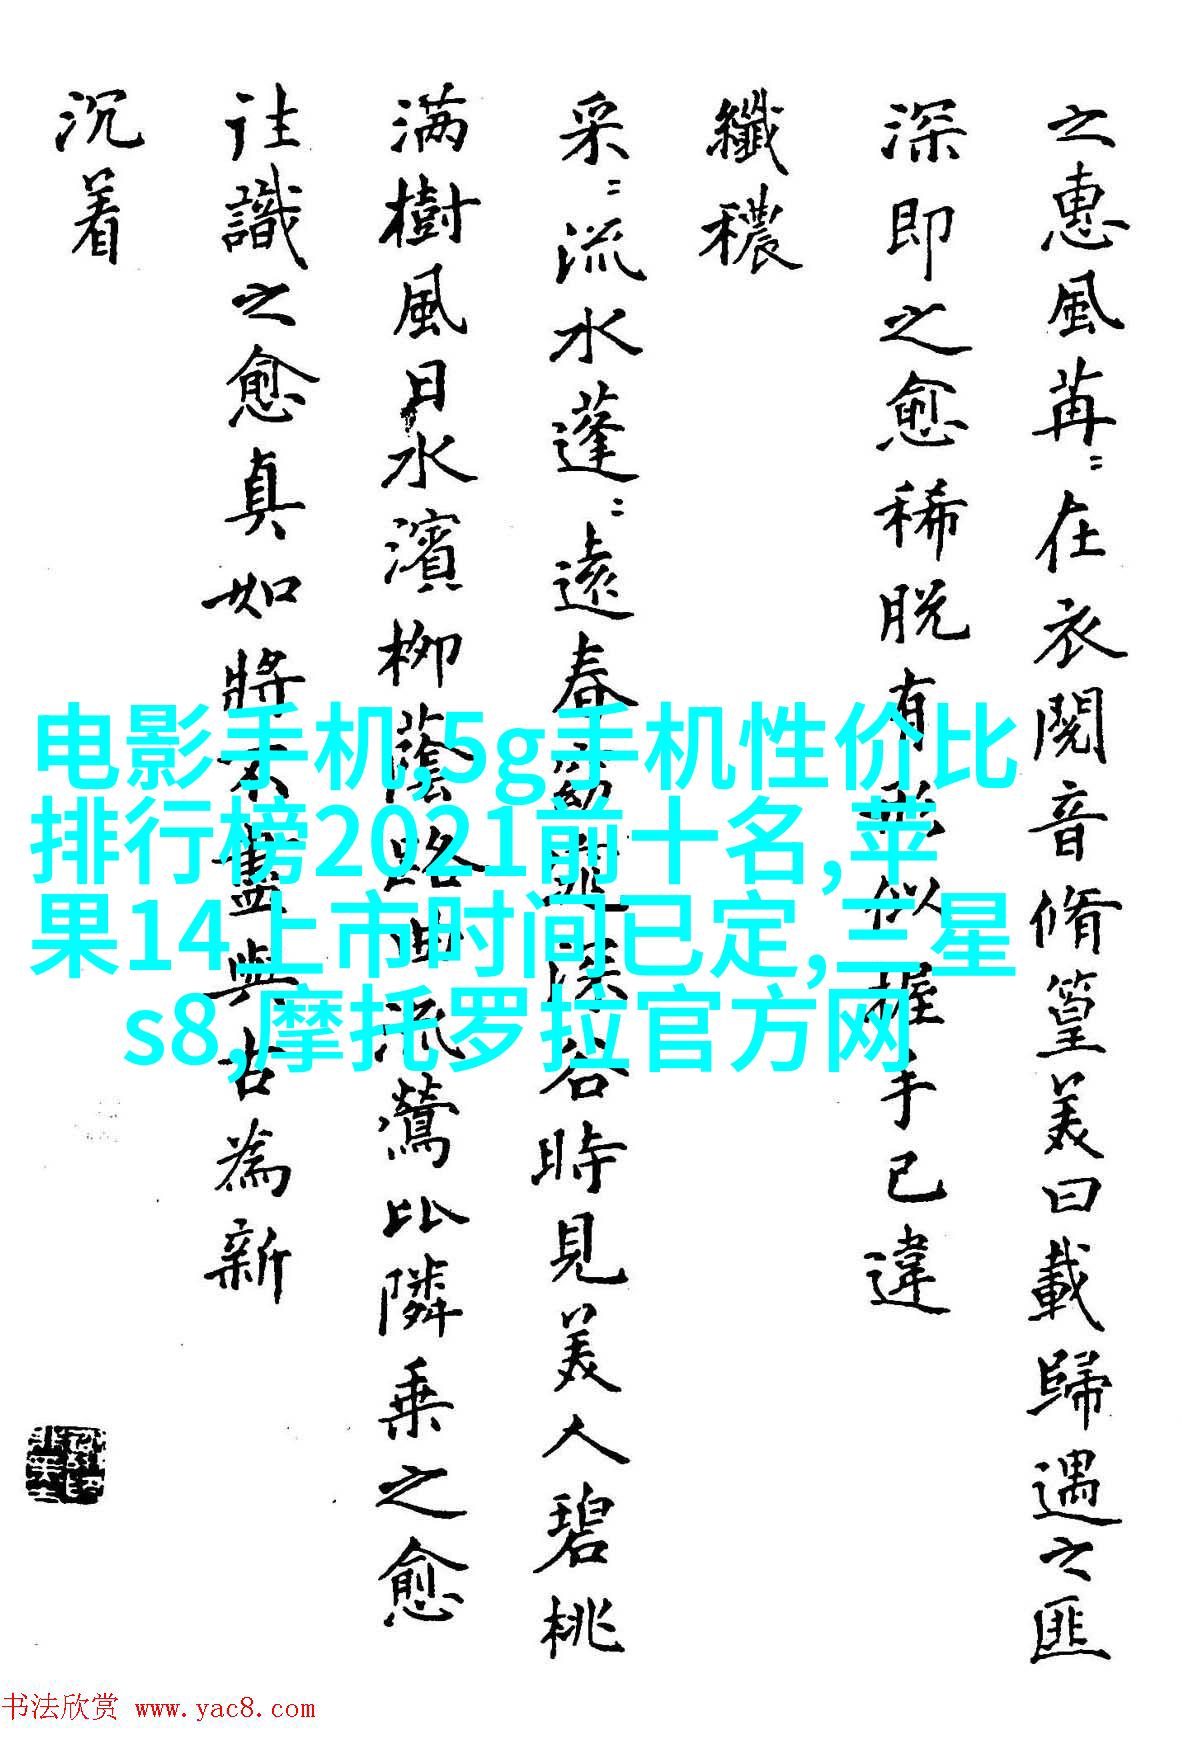 之惠風苒〻在衣閱音脩篁美曰載歸遇之匪
深即之愈稀脱有形似握手已違
纖穠
采〻流水蓬〻遠春窈深谷時見美人碧桃
满樹風日水濱柳蔭路曲流鶯比隣乗之愈
往識之愈真如將不盡與古為新
沉着
电影手机,5g手机性价比
排行榜2021前十名,苹
果14上市时间已定,三星
s8,摩托罗拉官方网
书法欣赏 www.yac8.com